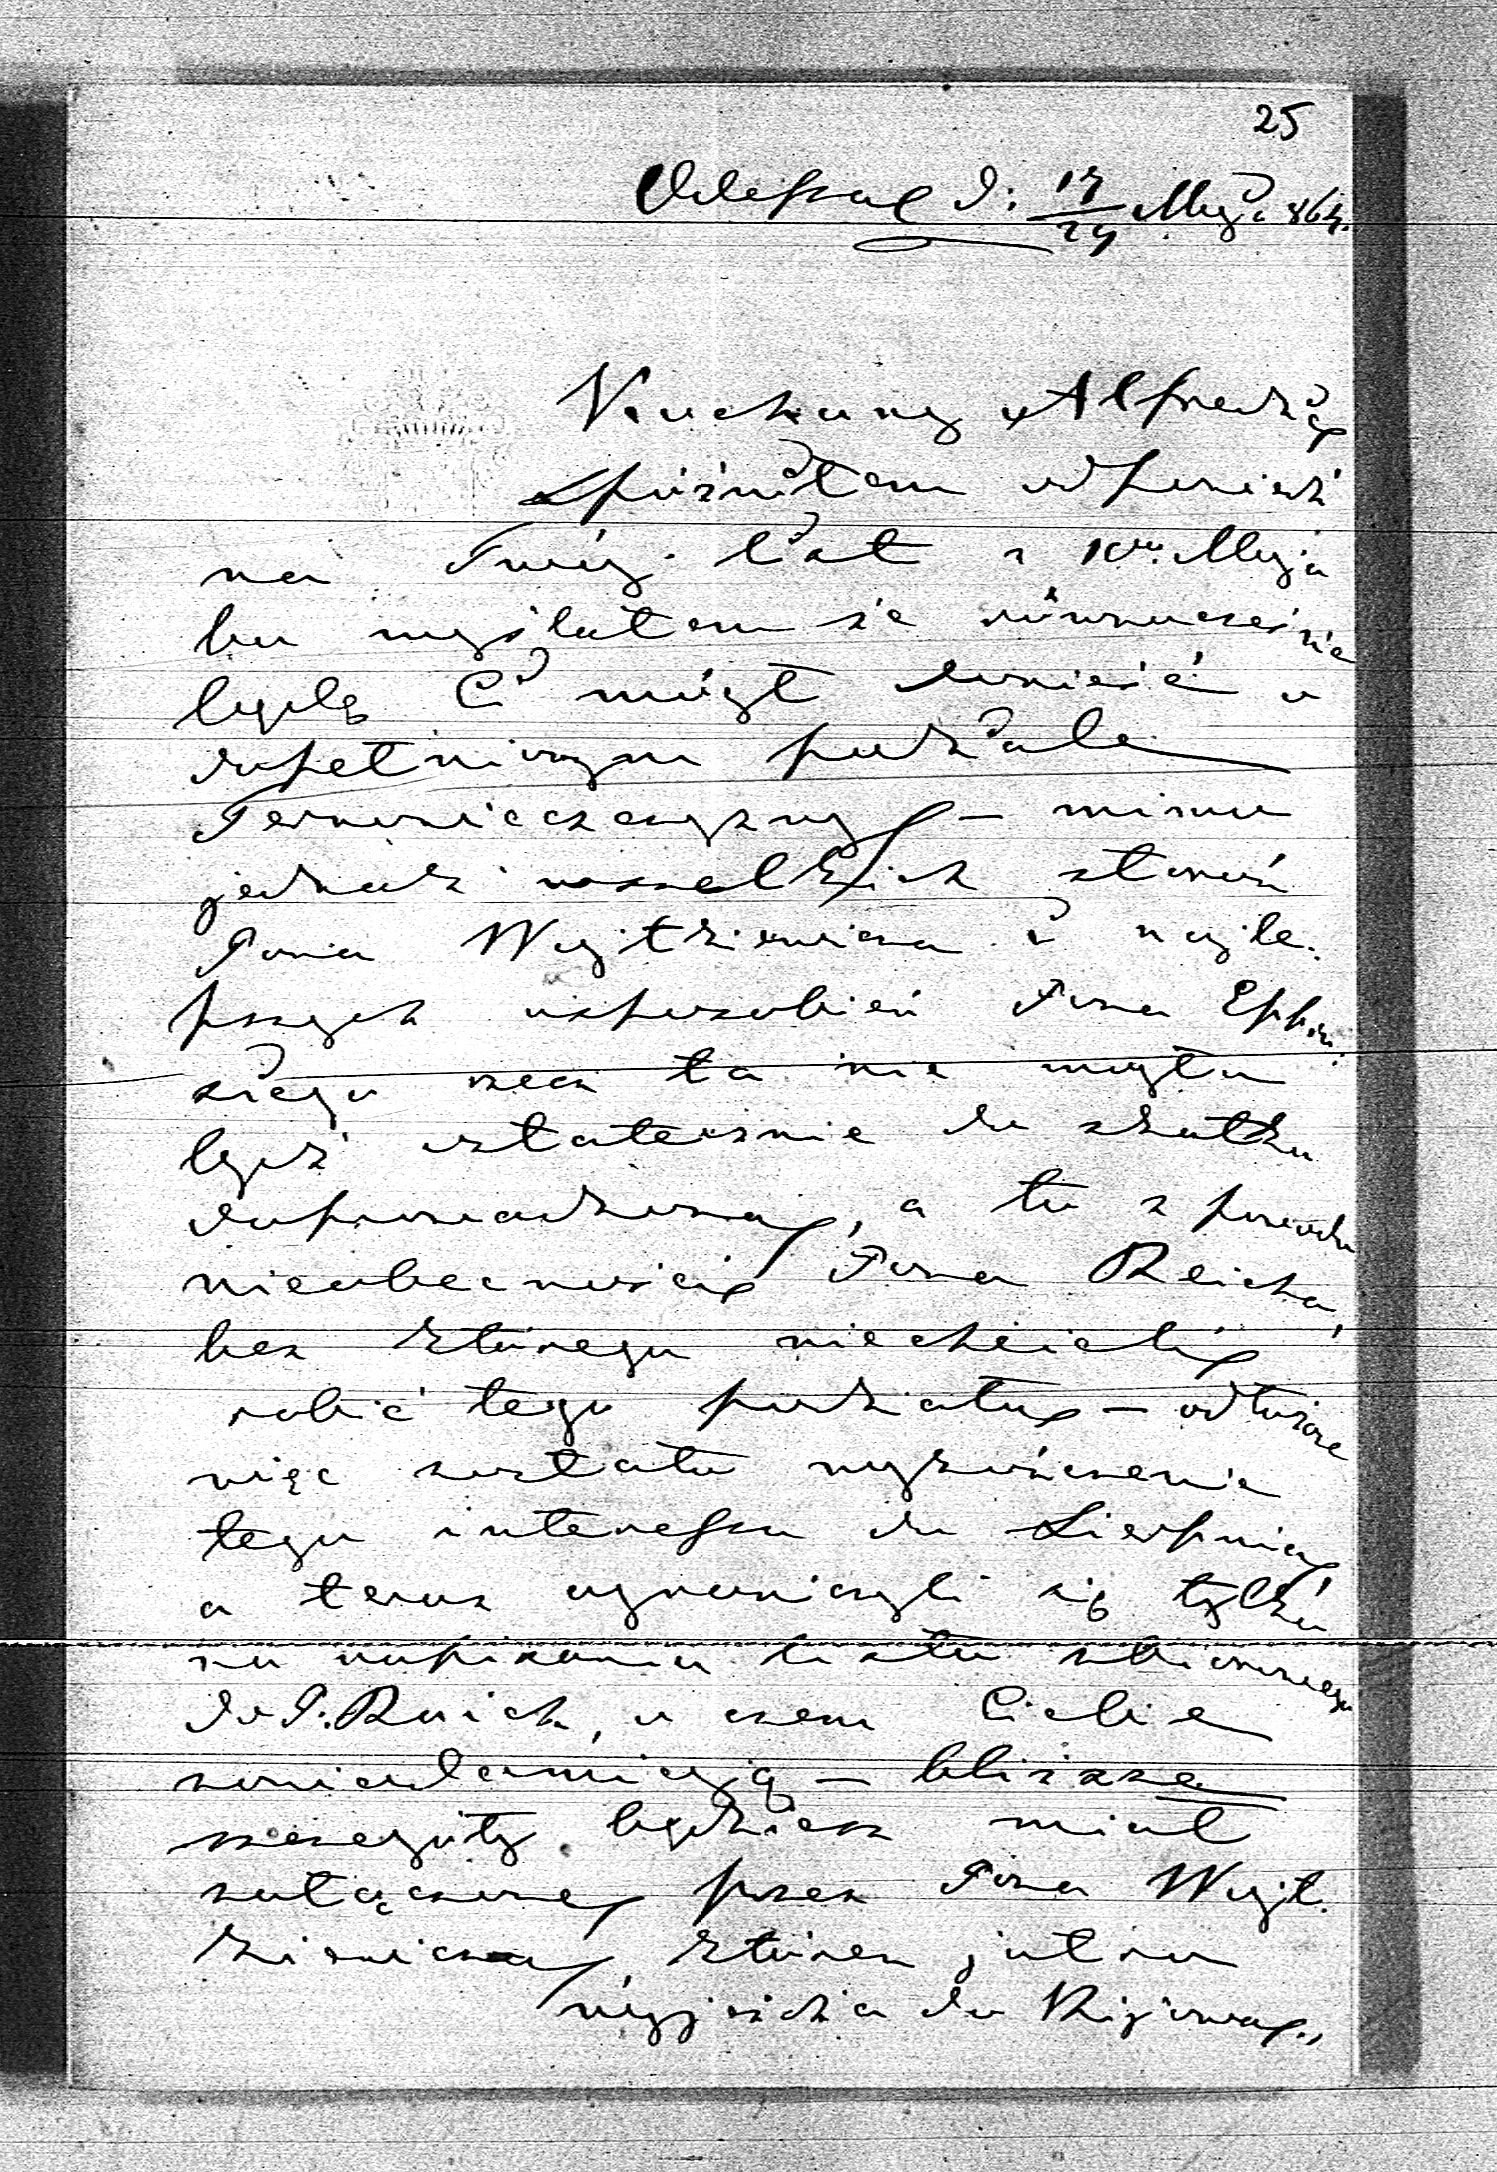 25
Odessa d: 17/29 Maja 864.
Kochany Alfredzie
spóźniłem odpowiedź
na Twój list z 10go Maja
bo myślałem że równocześnie
będę Ci mógł donieść o
dopełnionym podziale
Ternowieckczyzny — mimo
jednak wszelkich starań
Pana Wojtkiewicza i najle-
pszych usposobień Pana
rzecz ta nie mogła
być ostatecznie do skutku
doprowadzoną, a to z powodu
nieobecności Pana Reicha,
bez którego niechcieli
robić tego podziału — odłożone
więc zostało wykończenie
tego interessu do Sierpnia
a teraz ograniczyli się tylko
na napisaniu listu zbiorowego
do P. Reich, o czem Ciebie
zawiadamiają — bliższe
szczegóły będziesz miał
załączone przez Pana Wojt-
kiewicza, który jutro
wyjeżdża do Kijowa,